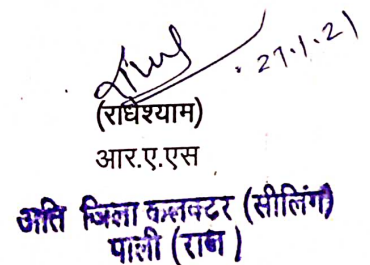 27.1.21
(राधेश्याम)
आर.ए.एस
अति जिला कलक्टर (सीलिंग)
पाली (राज)